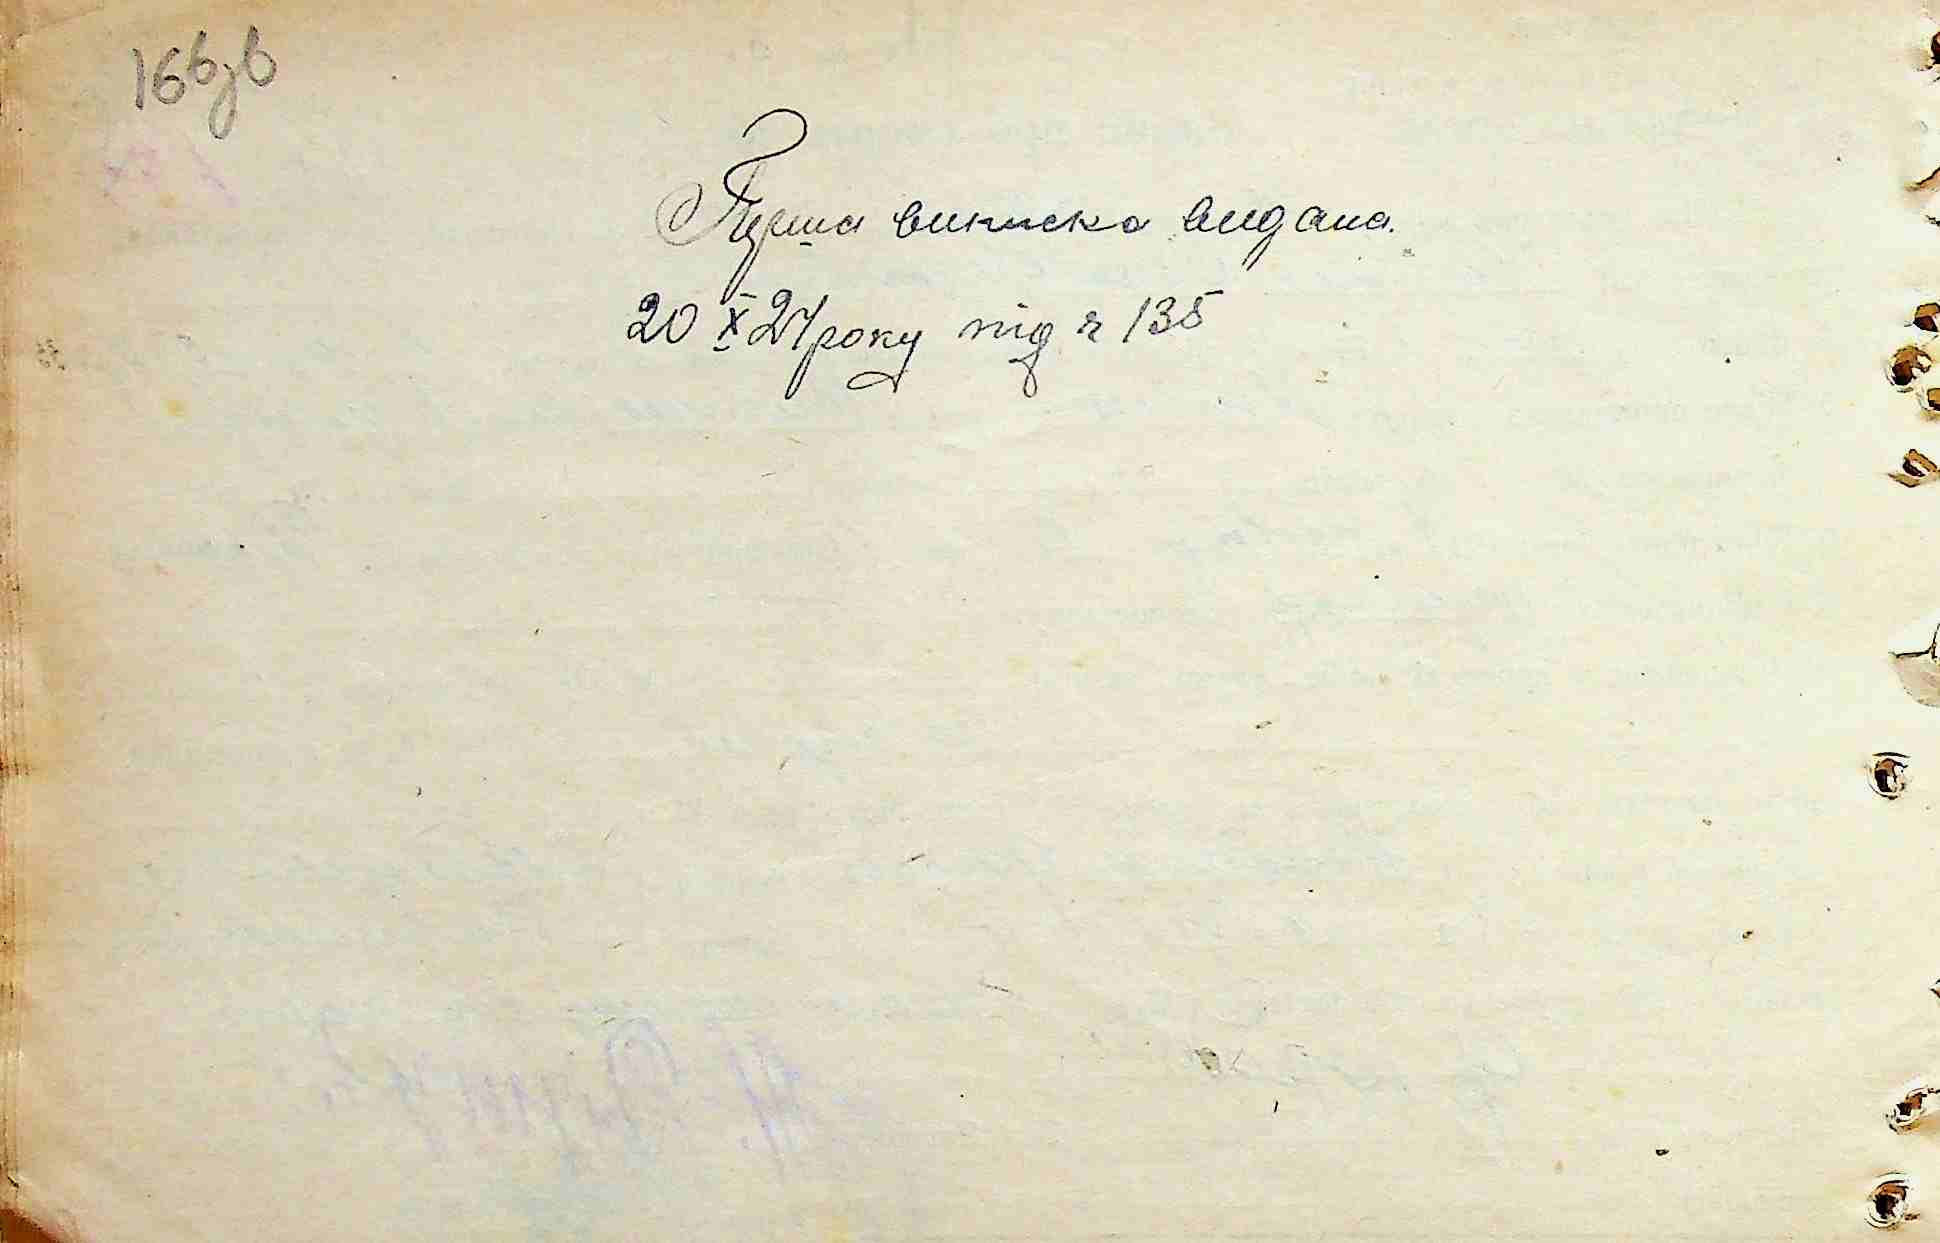 166зв
Перша виписка видана.
20 X 27 року під ч 135